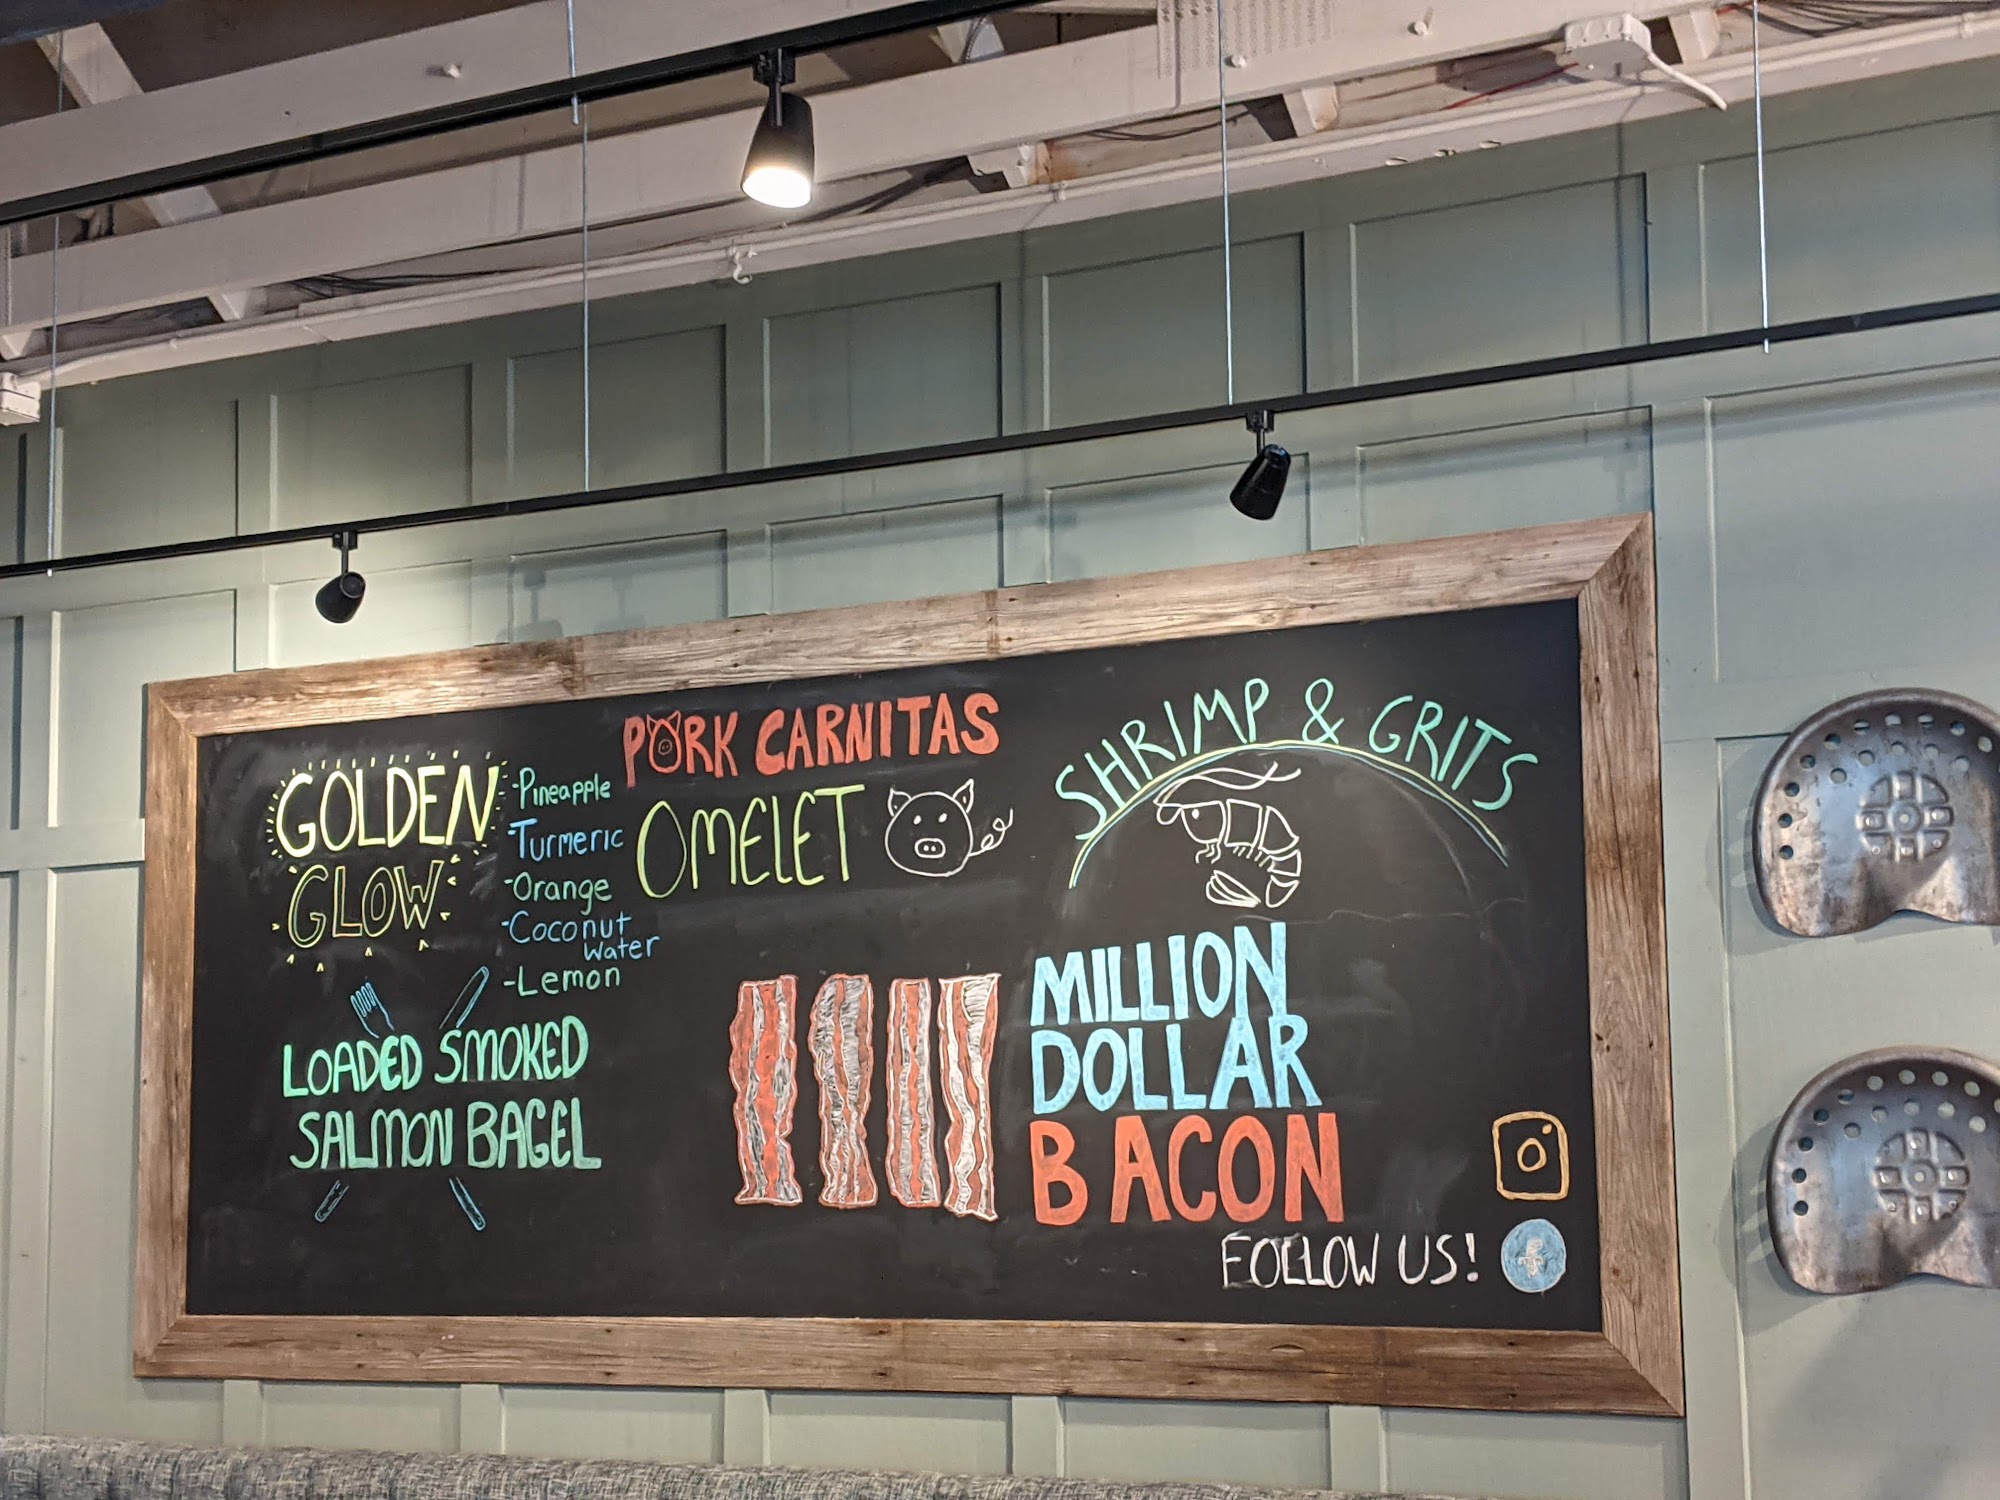 GOLDEN
GLOW
-Pineapple
-Turmeric
-Orange
-Coconut
Water
-Lemon
PORK CARNITAS
OMELET
SHRIMP & GRITS
LOADED SMOKED
SALMON BAGEL
MILLION
DOLLAR
BACON
FOLLOW US!
f